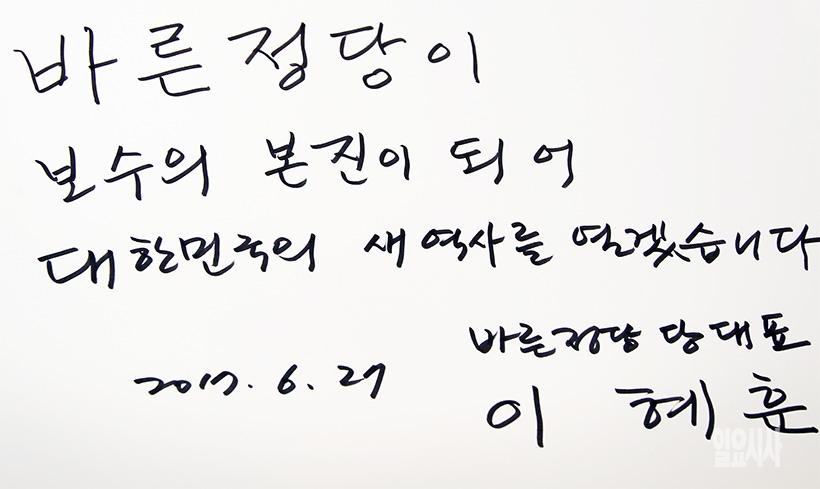 바른정당이
보수의 본진이 되어
대한민국의 새 역사를 열겠습니다
바른정당 당대표
2017. 6. 27
이 혜 훈
일요시사